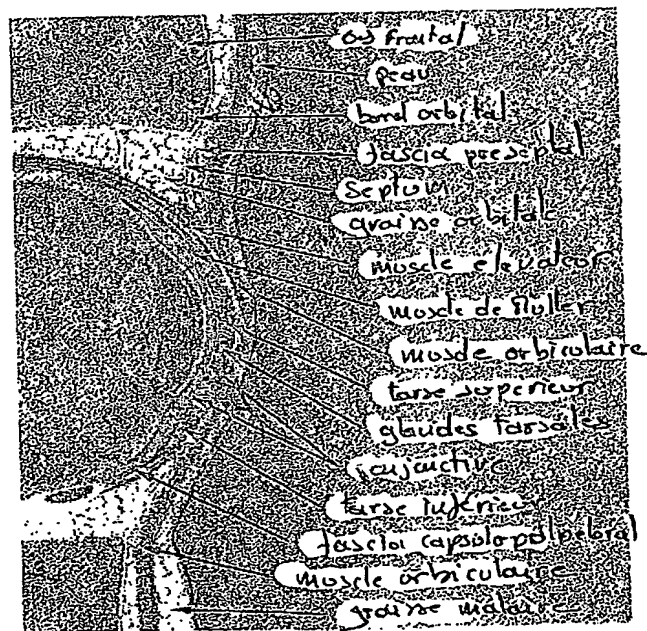 os frontal
peau
bord orbital
fascia preseptal
septum
graisse orbitale
muscle élévateur
muscle de Muller
muscle orbiculaire
tarse superieur
glandes tarsales
conjonctive
tarse inférieur
fascia capsulopalpebral
muscle orbiculaire
graisse malaire